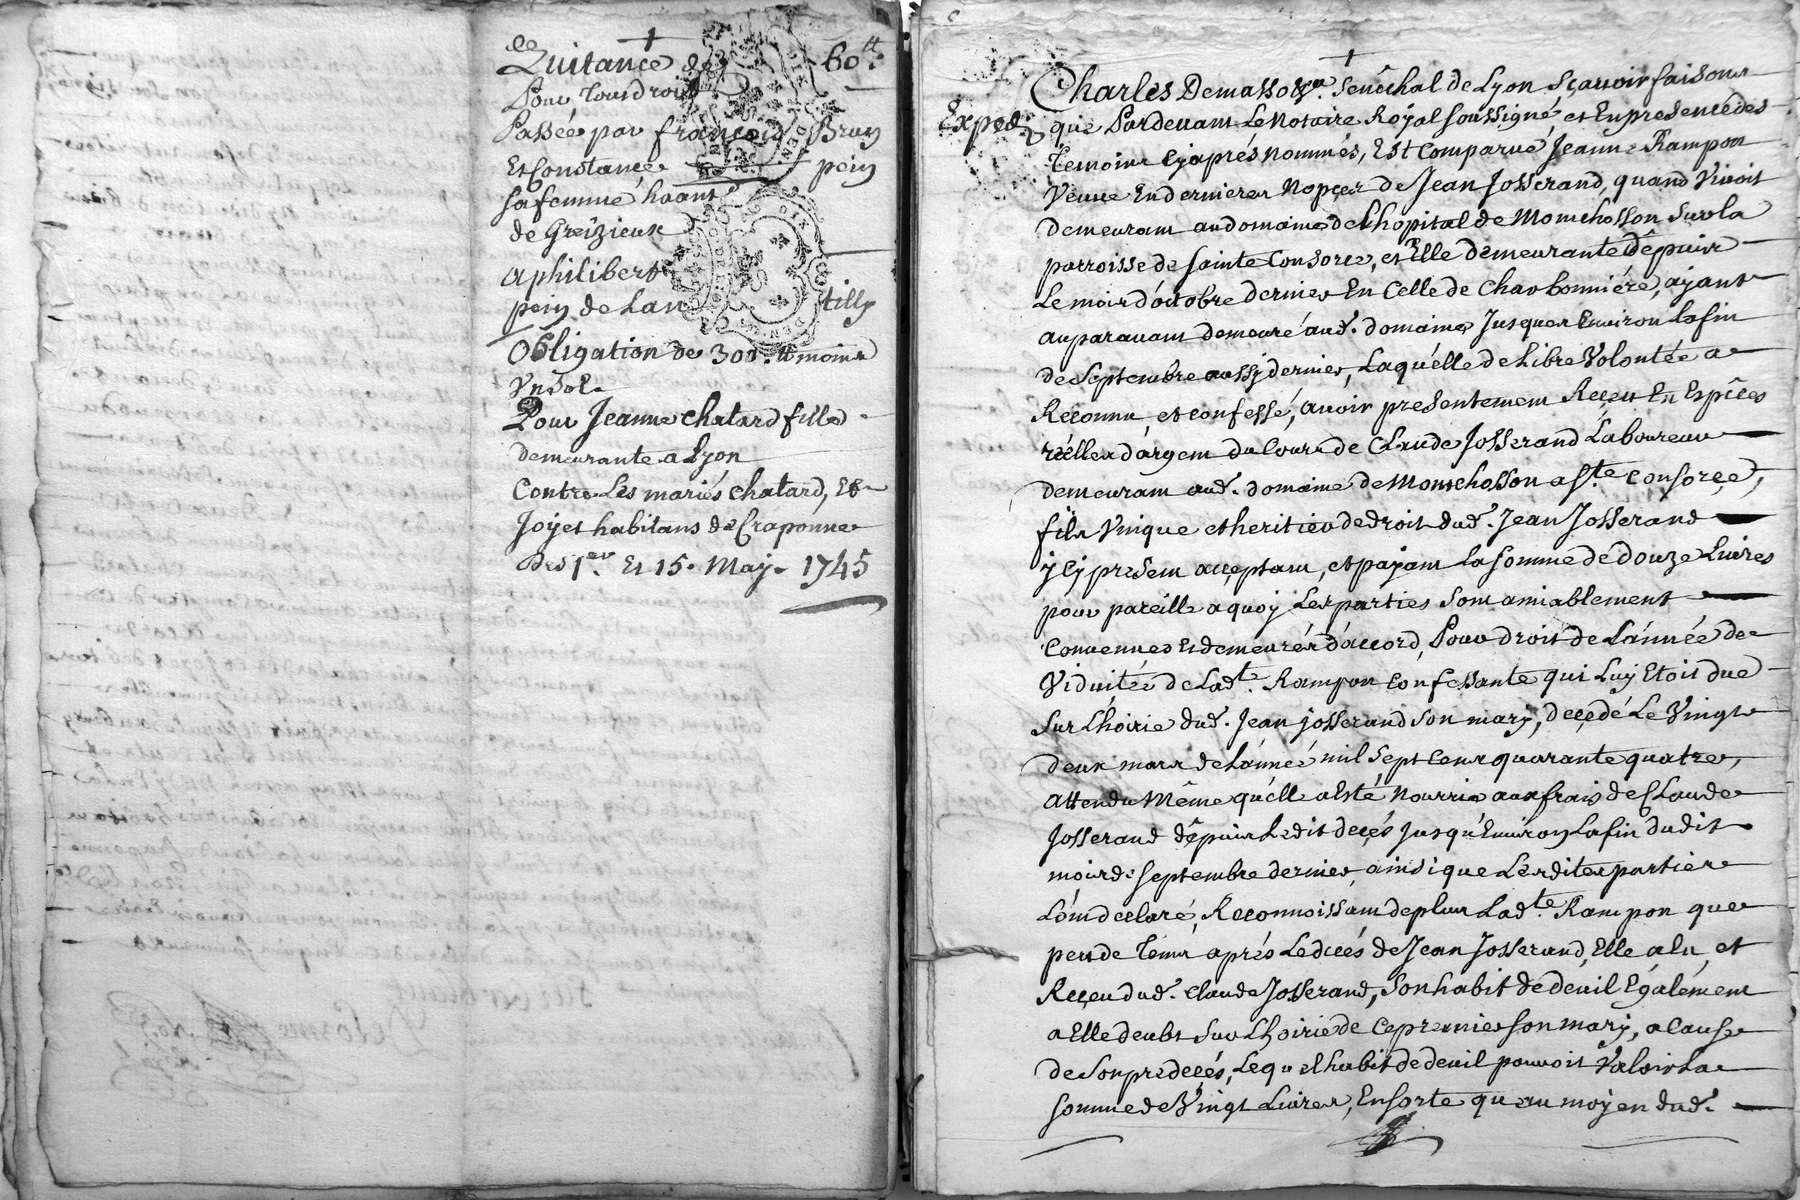 Quitance de 60.tt
Pour tous droits
Passée par françois Brun
Et Constance pein
sa femme h.ans
de Greizieux
a philibert
pein de Lan tilly
Obligation de 300.tt moins
Un Sol
Pour Jeanne Chatard fille
demeurante a Lyon
Contre Les mariés Chatard, Et
Joyet habitans de Craponne
Des 1er. Et 15. May. 1745
Exped
Charles Demasso &a. Senêchal de Lyon Sçavoir faisons
que Pardevant Le Notaire Royal soussigné et En presence des
Temoins Cy aprés nommés, Est Comparue Jeanne Rampon
Veuve En dernieres Nopçes de Jean Josserand, quand Vivoit
demeurant au domaine de L'hopital de Montchosson sur la
parroisse de sainte Consorce, et Elle demeurante dêpuis
Le mois d'octobre dernier En Celle de Charbonniére, ayant
auparavant demeuré aud. domaine Jusques Environ la fin
de Septembre aussy dernier, Laquélle de Libre Volontée a
Reconnu, et confessé, avoir presentement Reçeu En Espêces
réélles d'argent du Cours de Claude Josserand Laboureur
demeurant aud. domaine de Montchosson a Ste. Consorçe,
fils Unique et heritier de droit dud. Jean Josserand
ycy present acçeptant, et payant la somme de douze Livres
pour pareille a quoy Les parties sont amiablement
Convenues et demeurés d'accord, Pour droit de L'année de
Viduitée de Ladte. Rampon confessante qui Luy Etoit due
sur L'hoirie dud. Jean josserand son mary, deçedé Le Vingt
deux mars de L'année mil sept cens quarante quatre,
attendu Même qu'elle a Esté Nourrie aux frais de Claude
Josserand dêpuis Ledit deçés jusqu'Environ La fin dudit
mois de septembre dernier, ainsi que Lesdites parties
L'ont declaré, Reconnoissant de plus Ladte. Rampon que
peu de Tems aprés Le deces de Jean Josserand, Elle a Eu, et
Reçeu dud. Claude Josserand, son habit de deuil Egalement
a Elle deubt sur L'hoirie de Ce premier son mary, a Cause
de son predeçés, Lequel habit de deuil pouvoit Valoir La
somme de Vingt Livres, En sorte qu'au moyen dud.